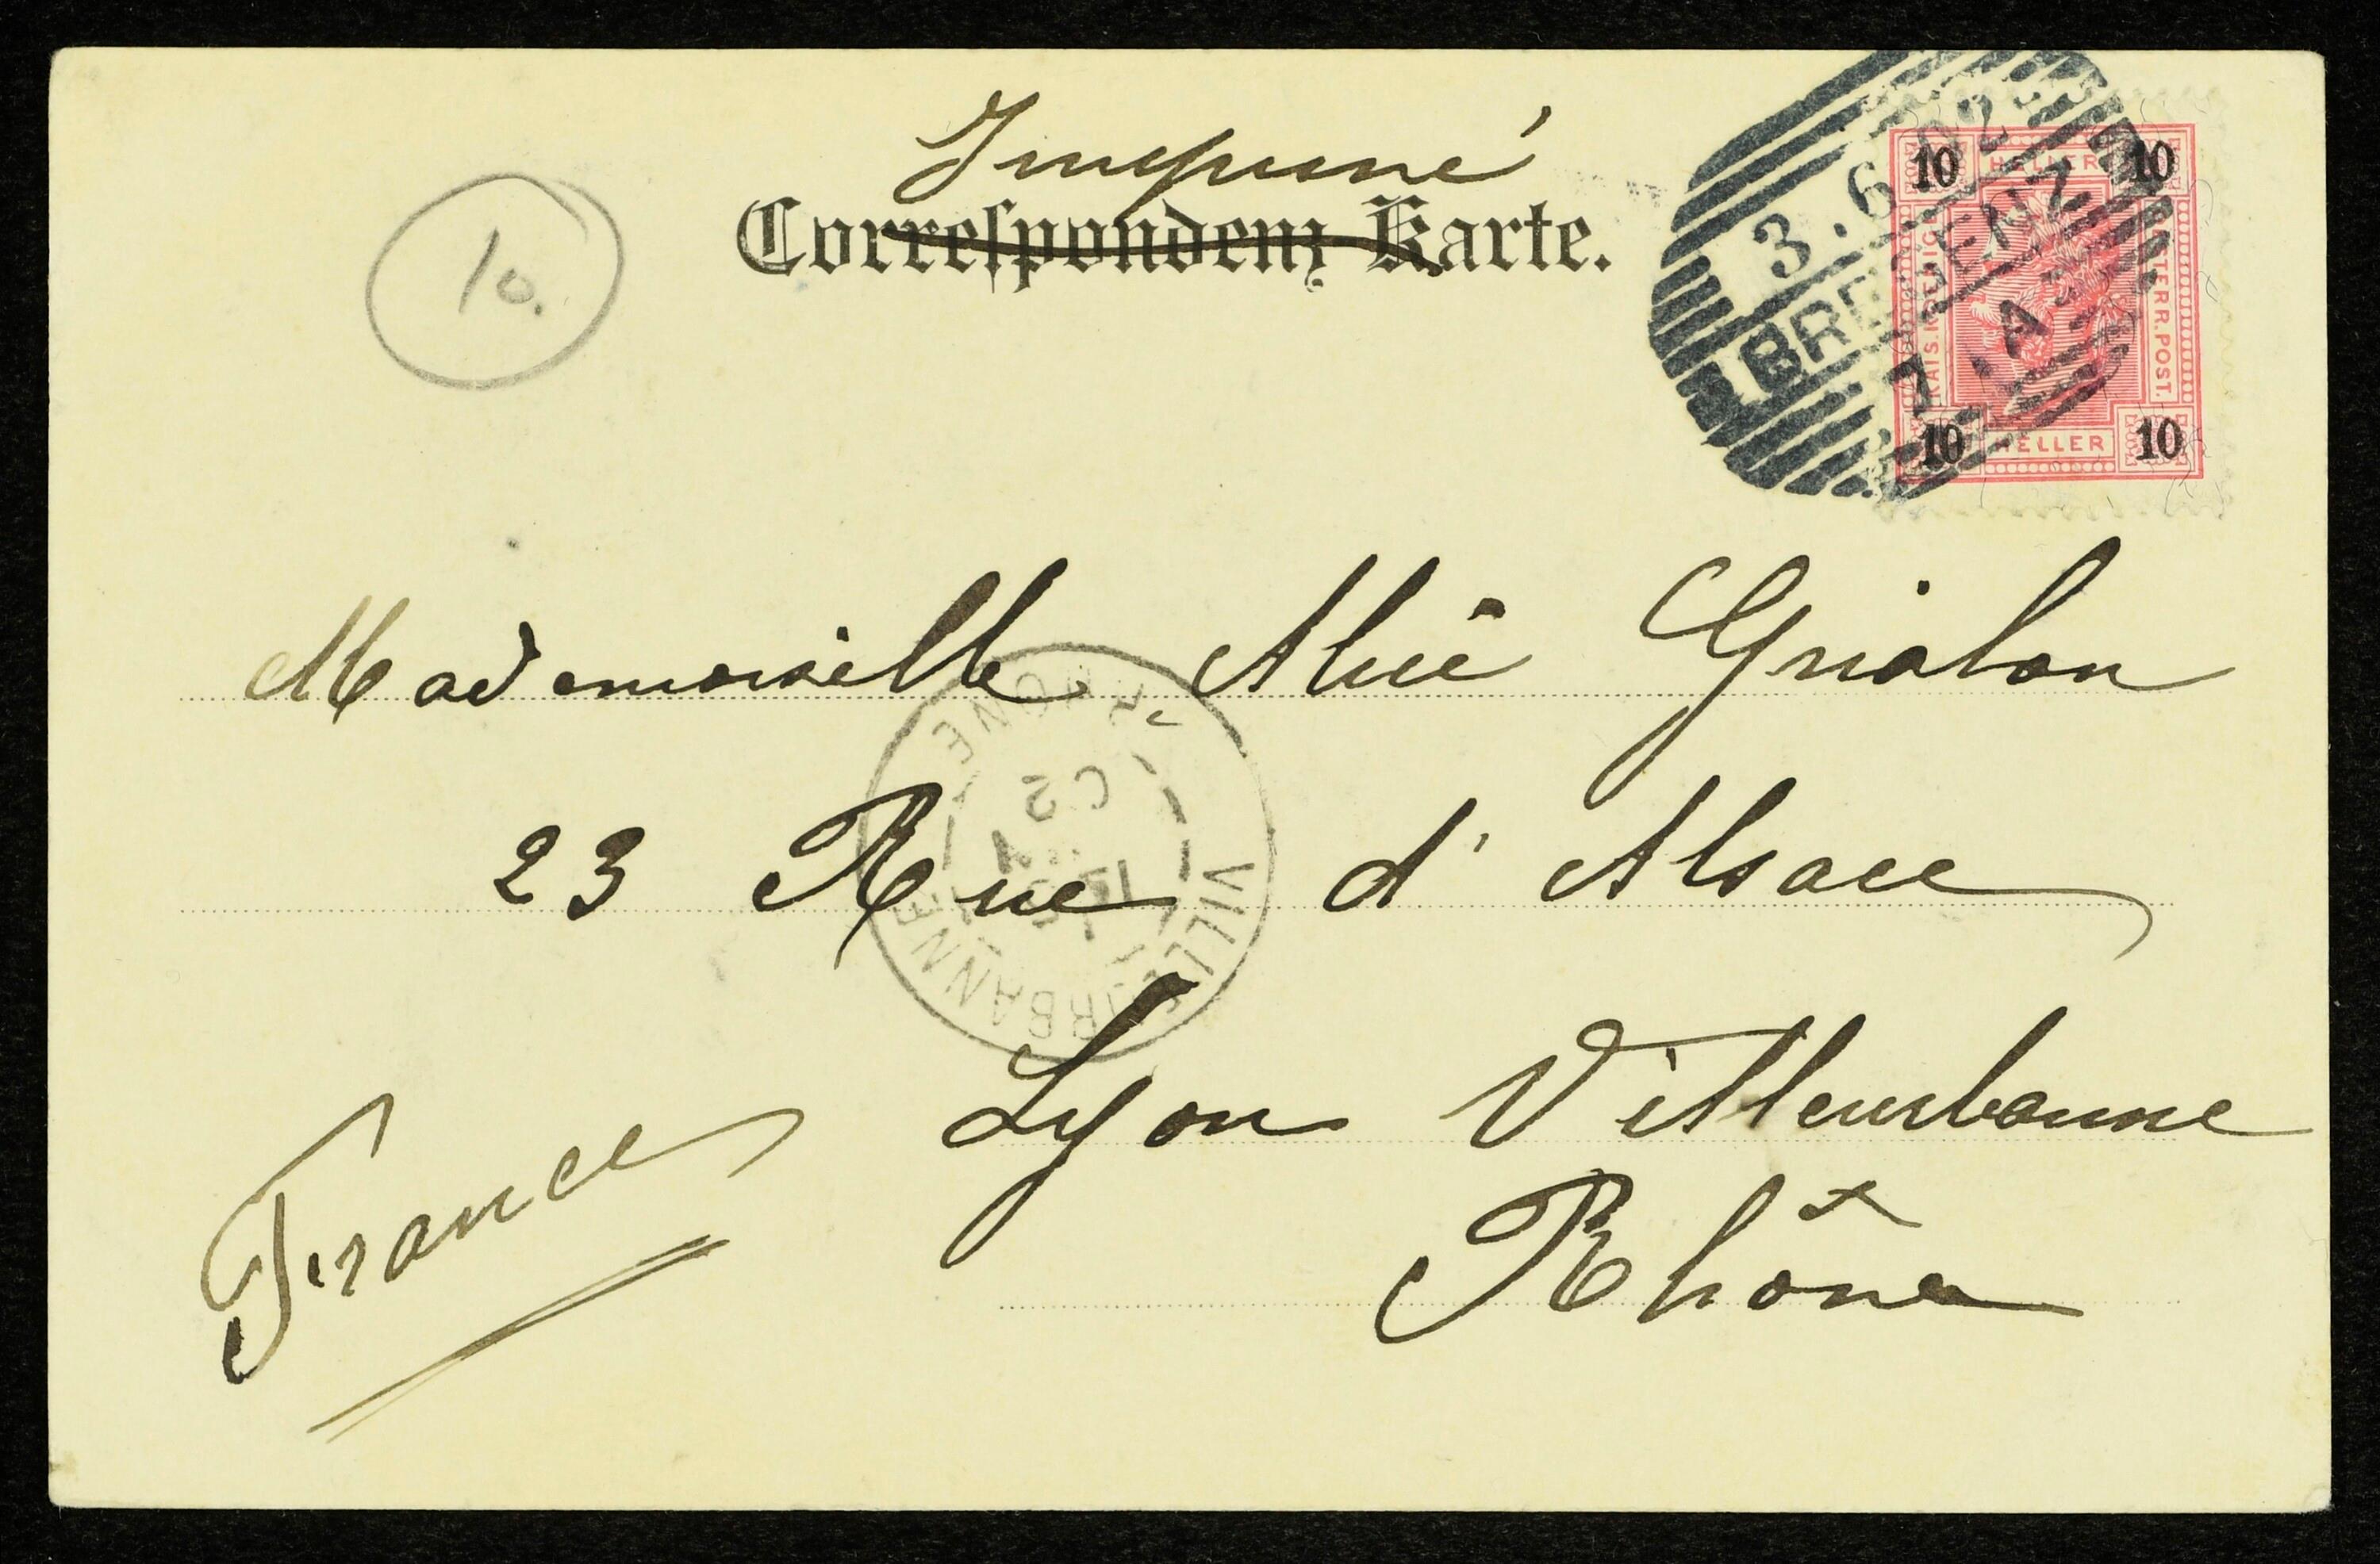 Imprimé
Correſpondenz Karte.
10.
3.6.02
BREGENZ
7. A
10 HELLER 10
KAIS.KOENIGL.
OESTERR.POST.
10 HELLER 10
Mademoiselle Alice Grialou
23 Rue d'Alsace
Lyon Villeurbanne
Rhône
France
VILLEURBANNE
RHONE
02